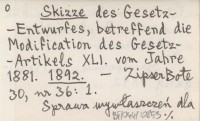 Skizze des Gesetz-
-Entwurfes, betreffend die
Modification des Gesetz-
-Artikels XLI. vom Jahre
1881. 1892. — Zipser Bote
30, nr 36: 1.
Sprawa wywłaszczeń dla